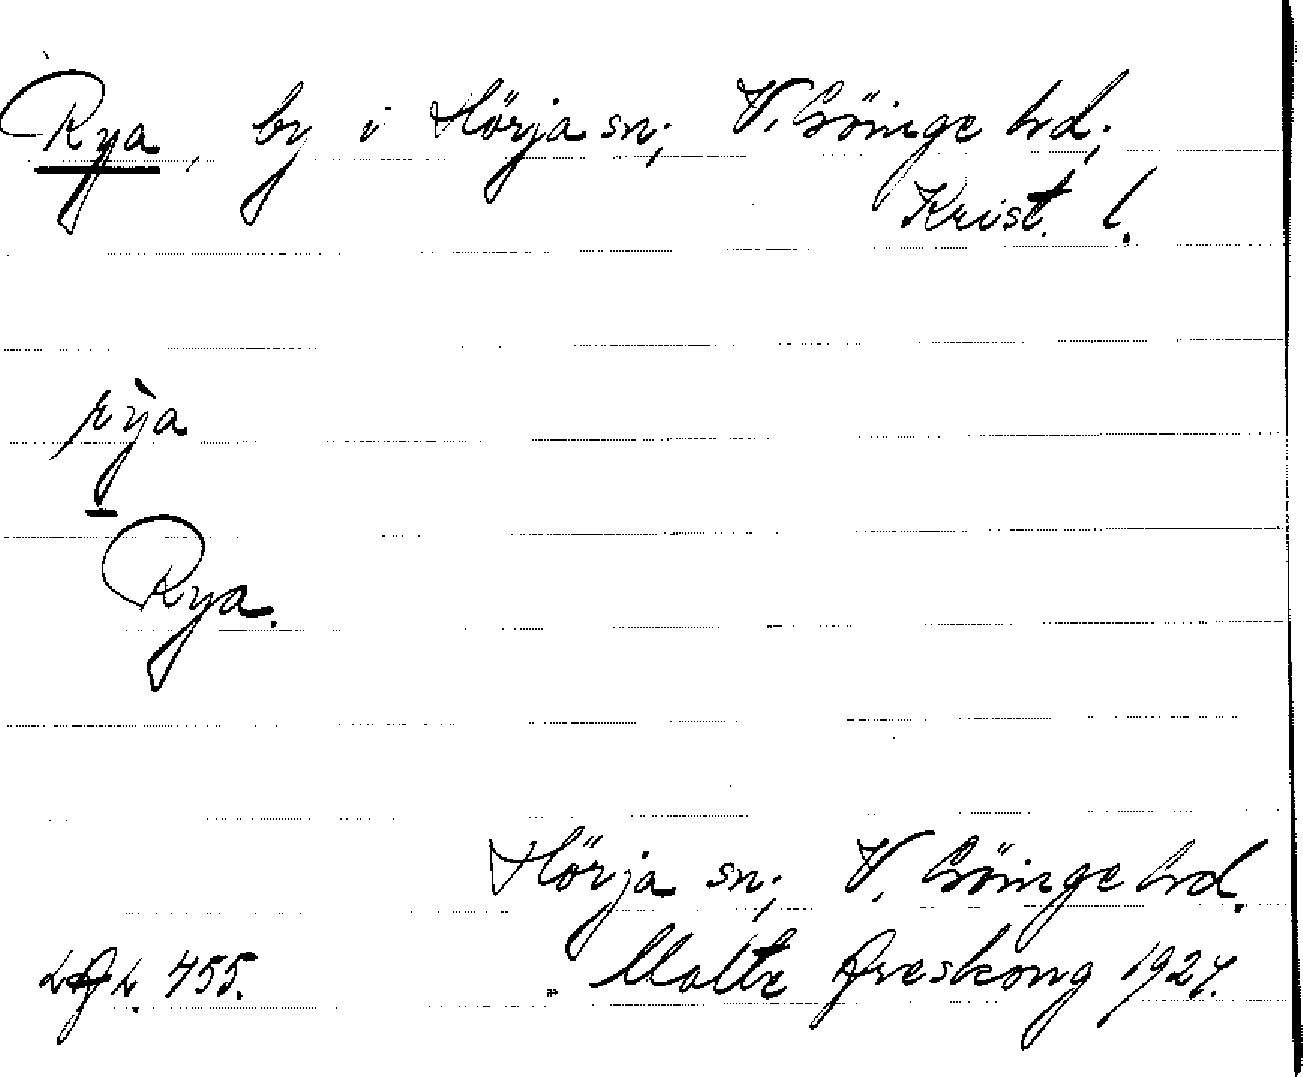 Rya, by i Hörja sn; V. Göinge hd;
Krist. l.
rỳa
Rya.
Hörja sn; V. Göinge hd.
455. Malte Areskoug 1927.